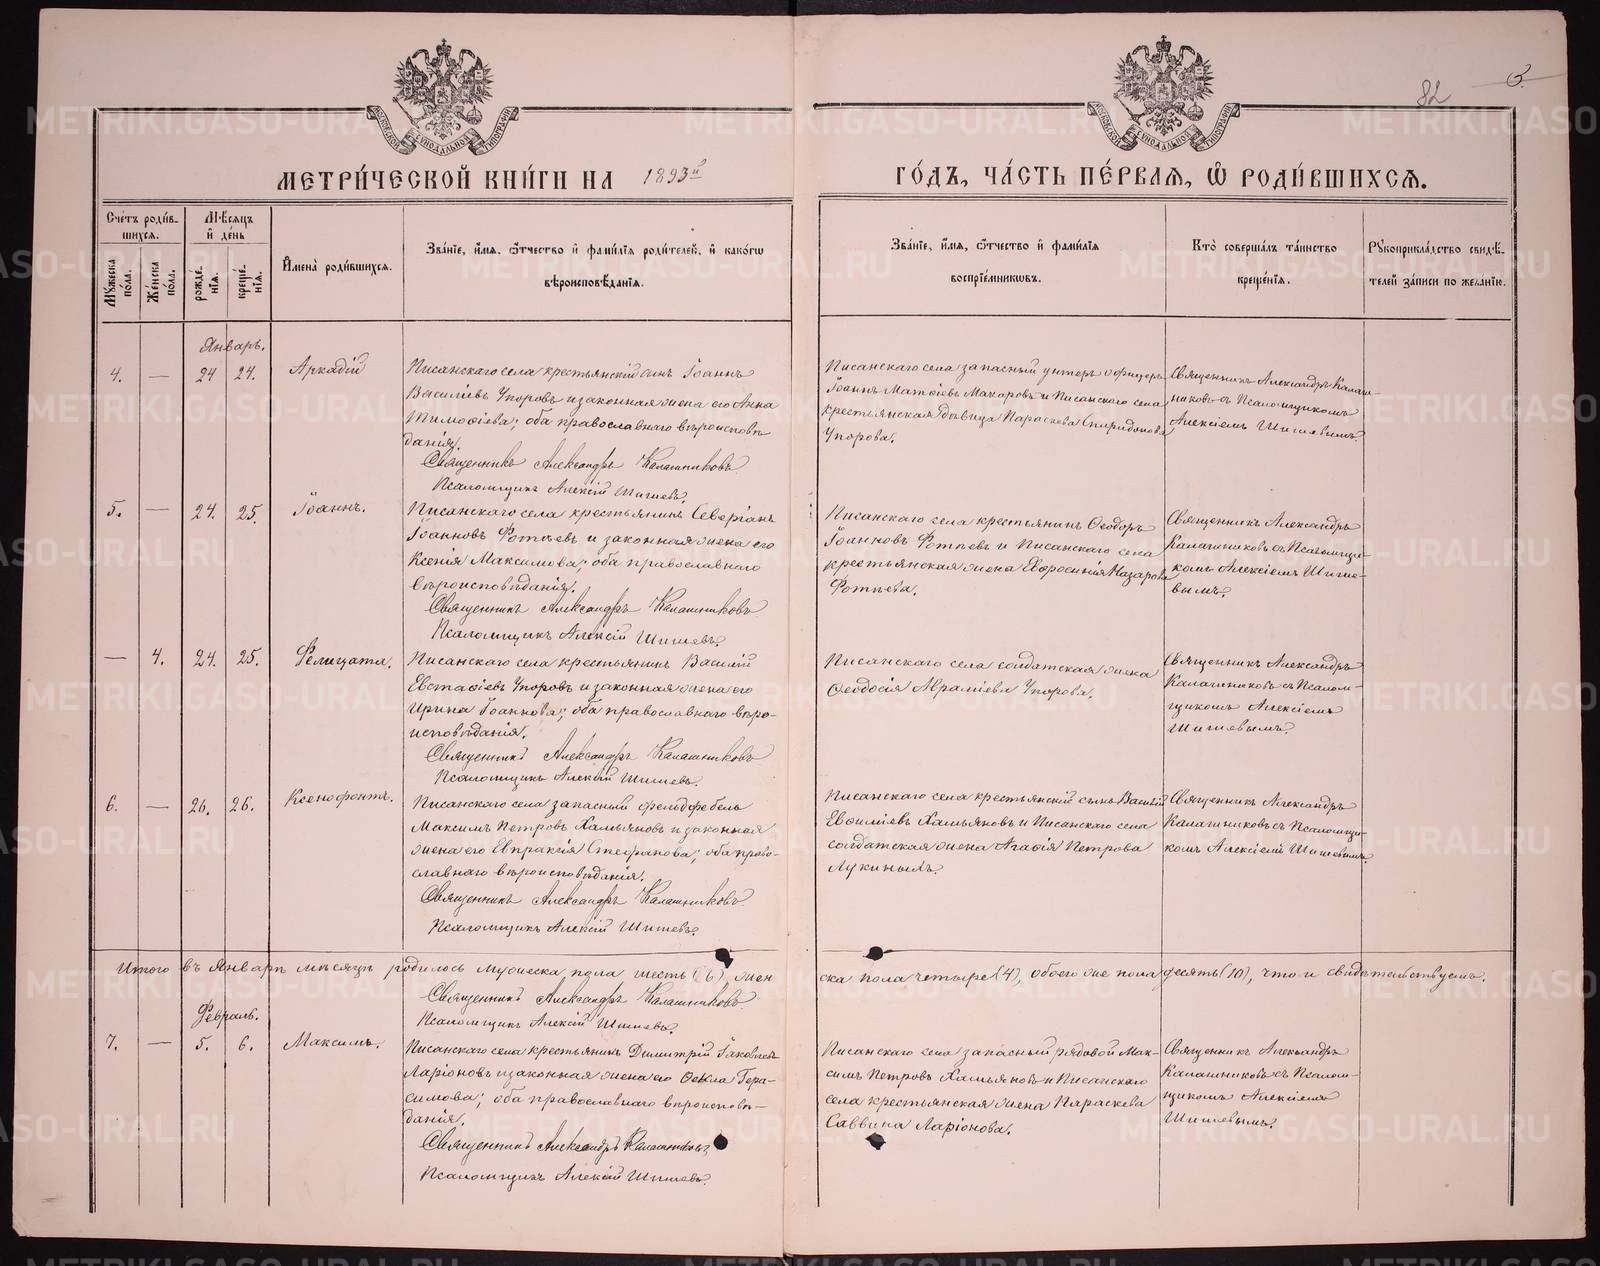 82
МОСКОВСКОЙ СѴНОДАЛЬНОЙ ТИПОГРАФІИ
МОСКОВСКОЙ СѴНОДАЛЬНОЙ ТИПОГРАФІИ
МЕТРИ́ЧЕСКОЙ КНИ́ГИ НА 1893й
ГО́ДЪ, ЧА́СТЬ ПЕ́РВАѦ, Ѡ РОДИ́ВШИХСѦ.
Сче́тъ роди́в-
шихся.
Мѣ́сяцъ
и҆ де́нь
Му́жеска по́ла.
Же́нска по́ла.
рожде́нія.
креще́нія.
И҆мена̀ роди́вшихся.
Зва́ніе, и҆́мя, ѻ҆́тчество и҆ фами́лія роди́телей, и҆ како́гѡ
вѣроисповѣ́данія.
Зва́ніе, и҆́мя, ѻ҆́тчество и҆ фами́лія
воспріе́мниковъ.
Кто̀ соверша́лъ та́инство
креще́нія.
Рукоприкла́дство свидѣ́-
телей за́писи по жела́нію.
Январь.
4. — 24 24. Аркадій
Писанскаго села крестьянскій сынъ Іоаннъ
Василіевъ Упоровъ и законная жена его Анна
Тимофіева; оба православнаго вѣроисповѣ-
данія.
Священникъ Александръ Калашниковъ
Псаломщикъ Алексій Шишевъ.
Писанскаго села запасный унтеръ офицеръ
Іоаннъ Матѳіевъ Макаровъ и Писанскаго села
крестьянская дѣвица Параскева Спиридонова
Упорова.
Священникъ Александръ Калаш-
никовъ съ Псаломщикомъ
Алексіемъ Шишевымъ.
5. — 24. 25. Іоаннъ.
Писанскаго села крестьянинъ Северіанъ
Іоанновъ Фотѣевъ и законная жена его
Ксенія Максимова; оба православнаго
вѣроисповѣданія.
Священникъ Александръ Калашниковъ
Псаломщикъ Алексій Шишевъ.
Писанскаго села крестьянинъ Ѳеодоръ
Іоанновъ Фотѣевъ и Писанскаго села
крестьянская жена Евфросинія Назарова
Фотѣева.
Священникъ Александръ
Калашниковъ съ Псаломщи-
комъ Алексіемъ Шише-
вымъ.
— 4. 24. 25. Фелицата.
Писанскаго села крестьянинъ Василій
Евстафіевъ Упоровъ и законная жена его
Ирина Іоаннова; оба православнаго вѣро-
исповѣданія.
Священникъ Александръ Калашниковъ
Псаломщикъ Алексій Шишевъ.
Писанскаго села солдатская жена
Ѳеодосія Авраміева Упорова.
Священникъ Александръ
Калашниковъ съ Псалом-
щикомъ Алексіемъ
Шишевымъ.
6. — 26. 26. Ксенофонтъ.
Писанскаго села запасный фельдфебель
Максимъ Петровъ Хамьяновъ и законная
жена его Евпраксія Стефанова; оба право-
славнаго вѣроисповѣданія.
Священникъ Александръ Калашниковъ
Псаломщикъ Алексій Шишевъ.
Писанскаго села крестьянскій сынъ Василій
Евѳиміевъ Хамьяновъ и Писанскаго села
солдатская жена Агафія Петрова
Лукиныхъ.
Священникъ Александръ
Калашниковъ съ Псаломщи-
комъ Алексіемъ Шишевымъ
Итого въ Январѣ мѣсяцѣ родилось мужеска пола шесть (6), жен
ска пола четыре (4), обоего же пола десять (10), что и свидѣтельствуемъ.
Священникъ Александръ Калашниковъ
Псаломщикъ Алексій Шишевъ.
Февраль.
7. — 5. 6. Максимъ.
Писанскаго села крестьянинъ Димитрій Іаковлевъ
Ларіоновъ и законная жена его Ѳекла Гера-
симова; оба православнаго вѣроисповѣ-
данія.
Священникъ Александръ Калашниковъ
Псаломщикъ Алексій Шишевъ.
Писанскаго села запасный рядовой Мак-
симъ Петровъ Хамьяновъ и Писанскаго
села крестьянская жена Параскева
Саввина Ларіонова.
Священникъ Александръ
Калашниковъ съ Псалом-
щикомъ Алексіемъ
Шишевымъ.
METRIKI.GASO-URAL.RU